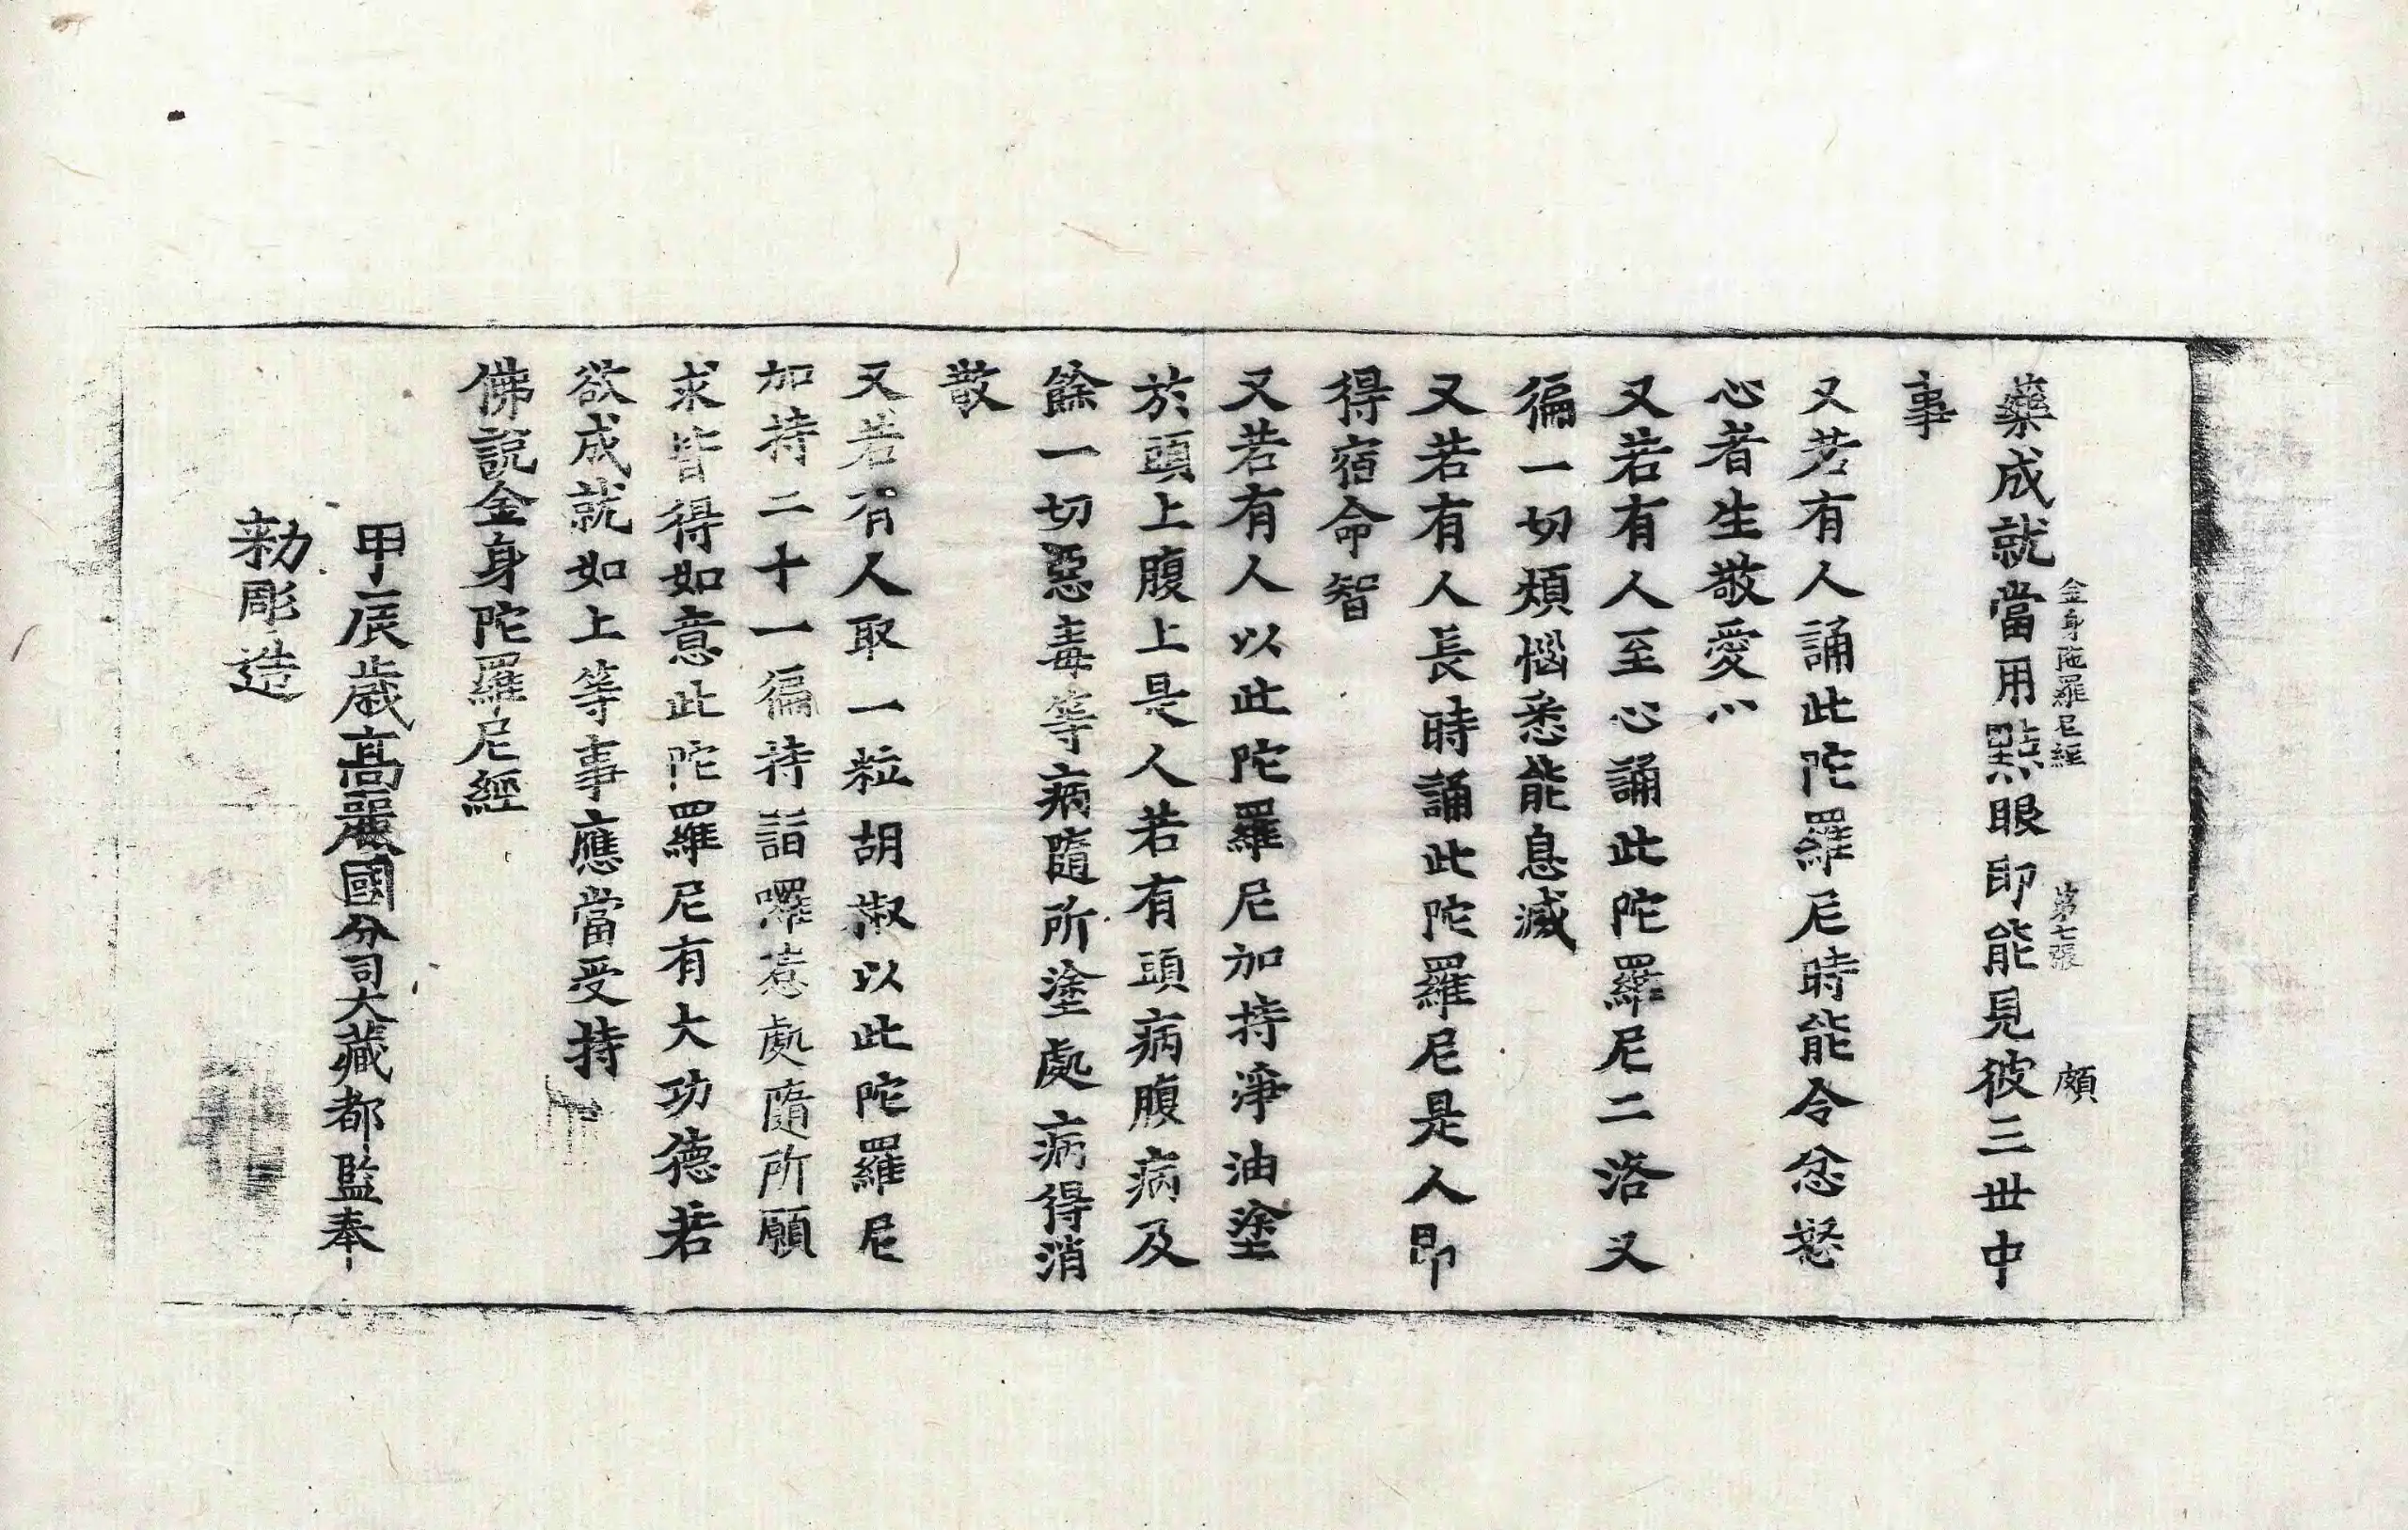 金身陁羅尼經 第七張 頗
藥成就當用點眼即能見彼三世中
事
又若有人誦此陀羅尼時能令忿怒
心者生敬愛心
又若有人至心誦此陀羅尼二洛叉
徧一切煩惱悉能息滅
又若有人長時誦此陀羅尼是人即
得宿命智
又若有人以此陀羅尼加持淨油塗
於頭上腹上是人若有頭病腹病及
餘一切惡毒等病隨所塗處病得消
散
又若有人取一粒胡椒以此陀羅尼
加持二十一徧持詣囉惹處隨所願
求皆得如意此陀羅尼有大功德若
欲成就如上等事應當受持
佛說金身陀羅尼經
甲辰歲高麗國分司大藏都監奉
勑彫造